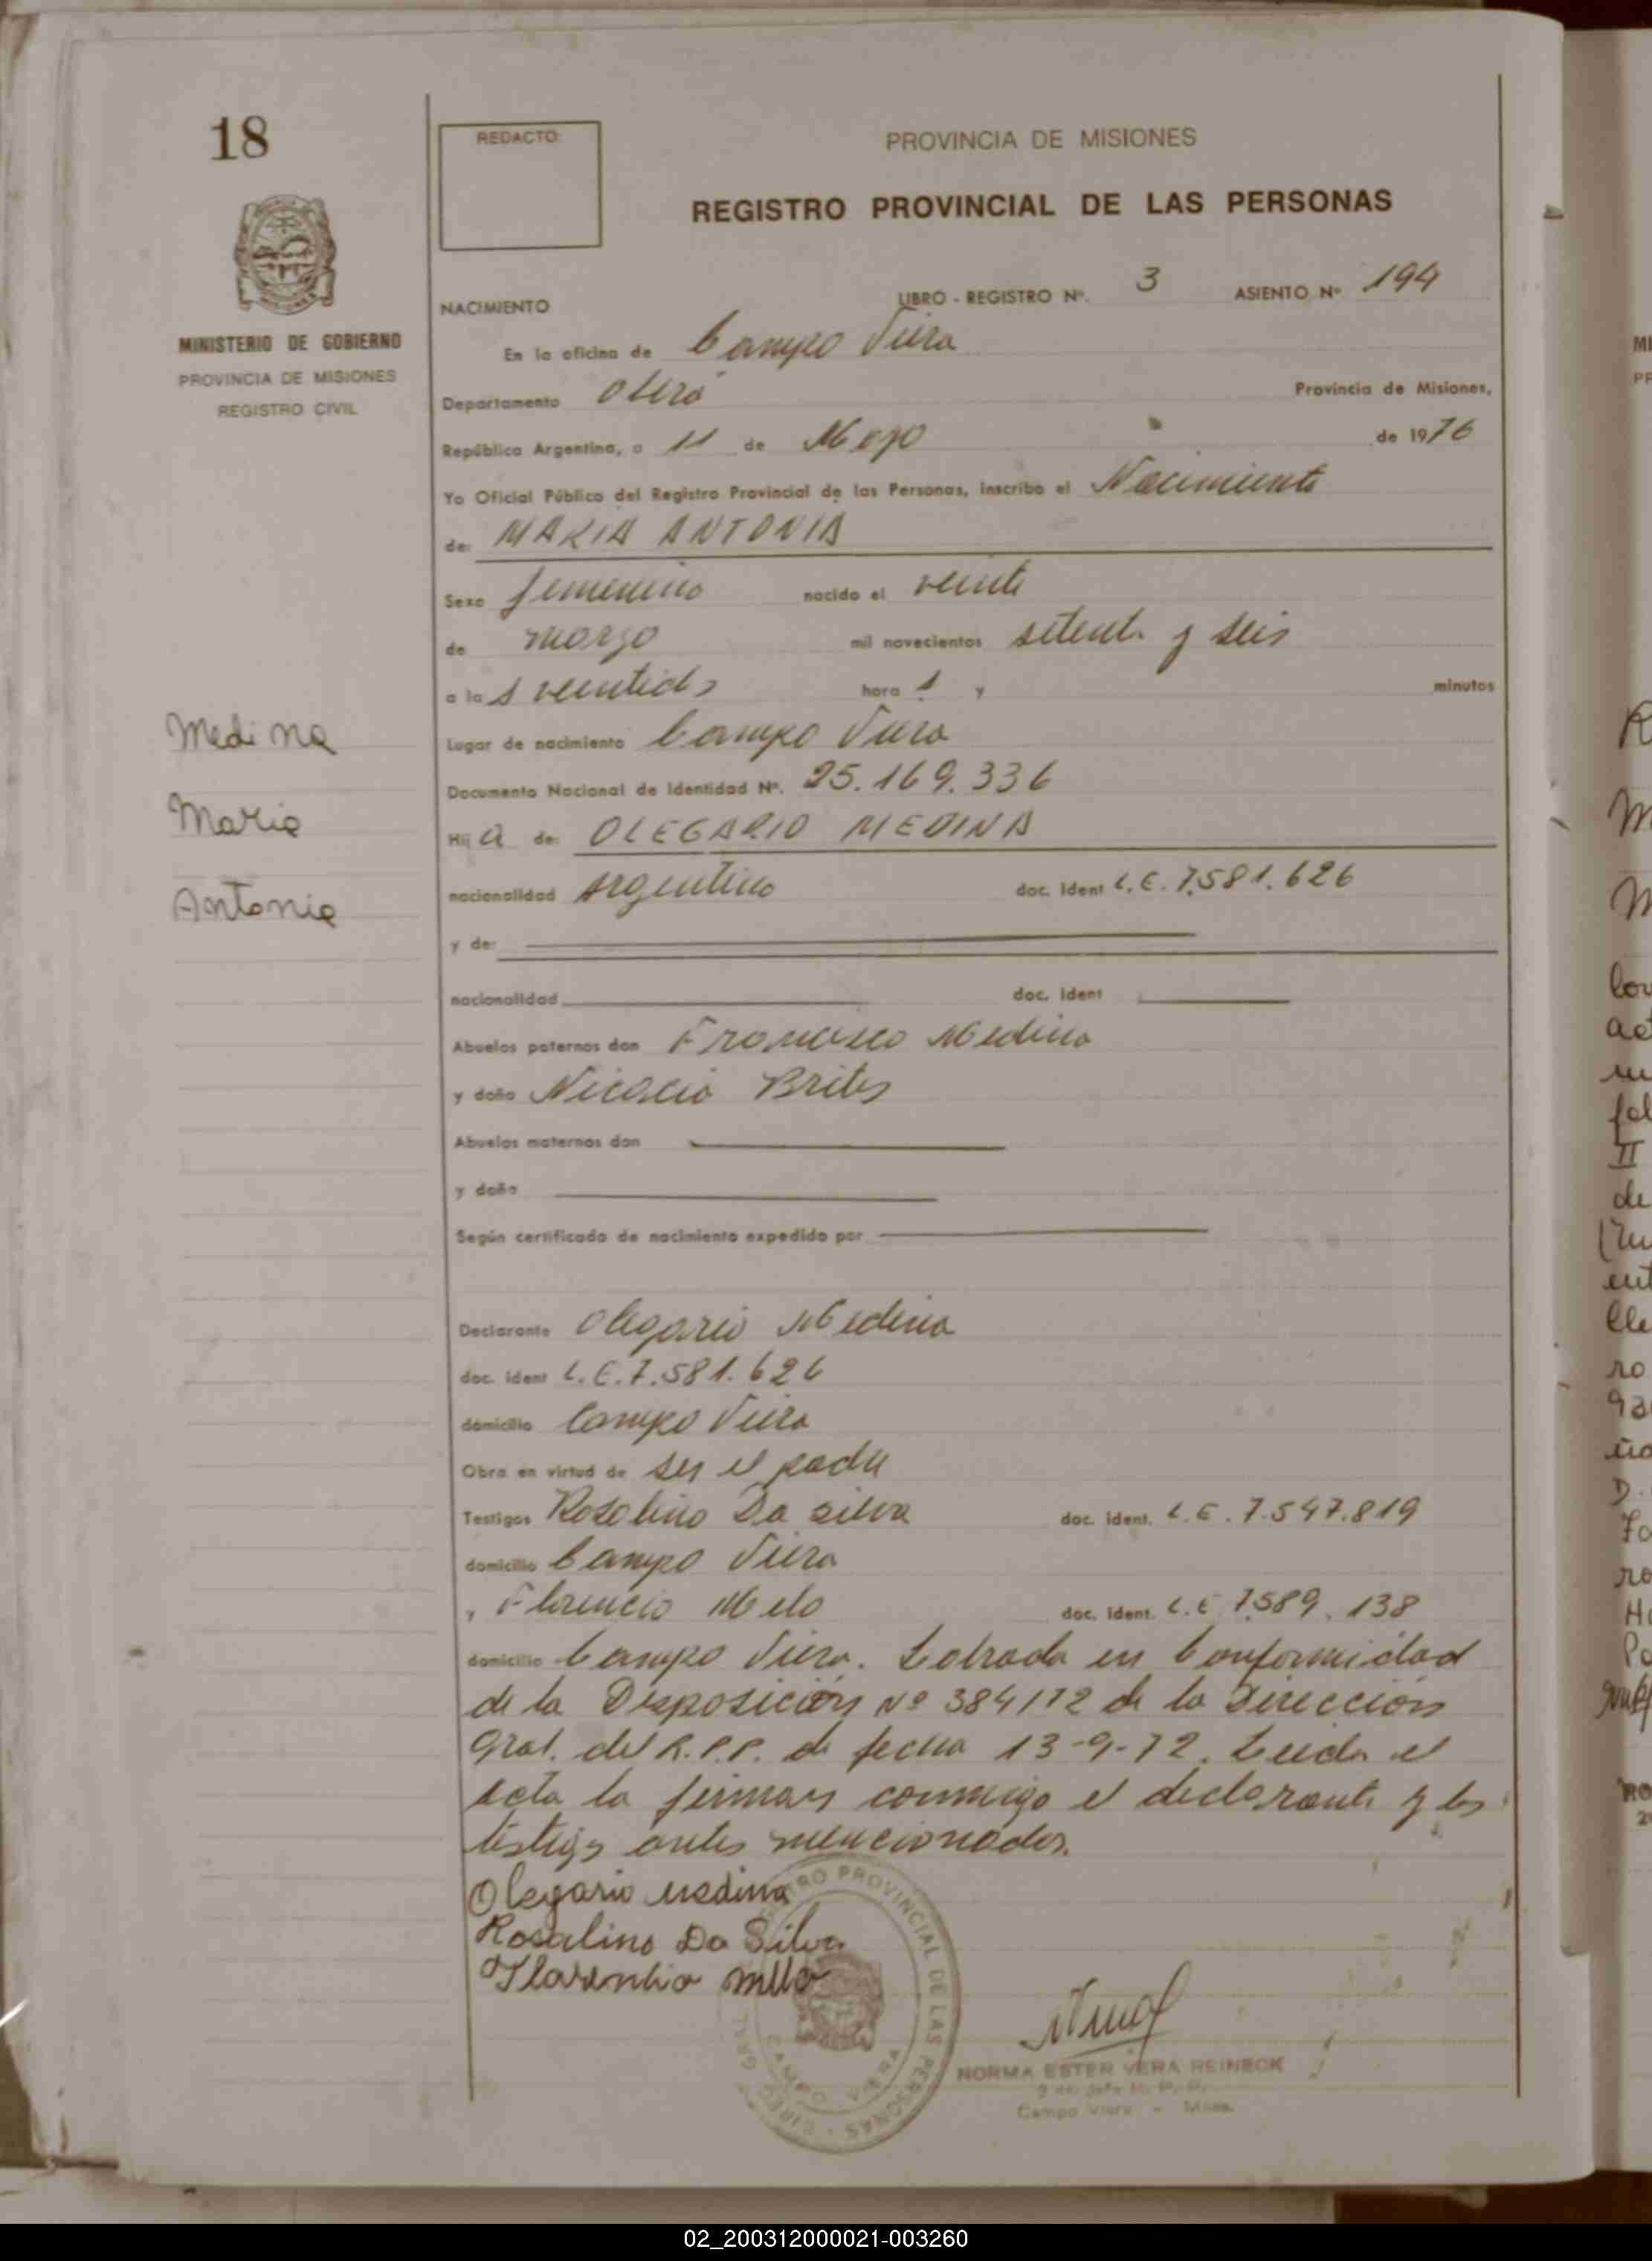 18
REDACTO:
PROVINCIA DE MISIONES
REGISTRO PROVINCIAL DE LAS PERSONAS
MINISTERIO DE GOBIERNO
PROVINCIA DE MISIONES
REGISTRO CIVIL
NACIMIENTO LIBRO - REGISTRO Nº. 3 ASIENTO Nº 194
En la oficina de Campo Viera
Departamento Oberá Provincia de Misiones,
República Argentina, a 11 de Mayo de 1976
Yo Oficial Público del Registro Provincial de las Personas, inscribo el Nacimiento
de: MARIA ANTONIA
Sexo femenino nacido el veinte
de marzo mil novecientos setenta y seis
a las veintidos hora s y minutos
Medina
Lugar de nacimiento Campo Viera
Documento Nacional de Identidad Nº. 25.169.336
Maria
Hija de: OLEGARIO MEDINA
nacionalidad argentino doc. Ident L.E. 7.581.626
Antonia
y de:
nacionalidad doc. Ident
Abuelos paternos don Francisco Medina
y doña Nicacia Brites
Abuelos maternos don
y doña
Según certificado de nacimiento expedido por
Declarante Olegario Medina
doc. ident L.E. 7.581.626
domicilio Campo Viera
Obra en virtud de ser el padre
Testigos Rosalino Da Silva doc. ident. L.E. 7.547.819
domicilio Campo Viera
, Florencio Melo doc. ident. L.E 7.589.138
domicilio Campo Viera. Labrada en Conformidad
de la Disposición Nº 384/72 de la Dirección
Gral. del R.P.P. de fecha 13-9-72. Leida el
acta la firman conmigo el declarante y los
testigos antes mencionados.
Olegario Medina
Rosalino Da Silva
Florenhio Mello
REGISTRO PROVINCIAL DE LAS PERSONAS
CAMPO VIERA
NORMA ESTER VERA REINECK
Campo Viera - Mnes.
02_200312000021-003260